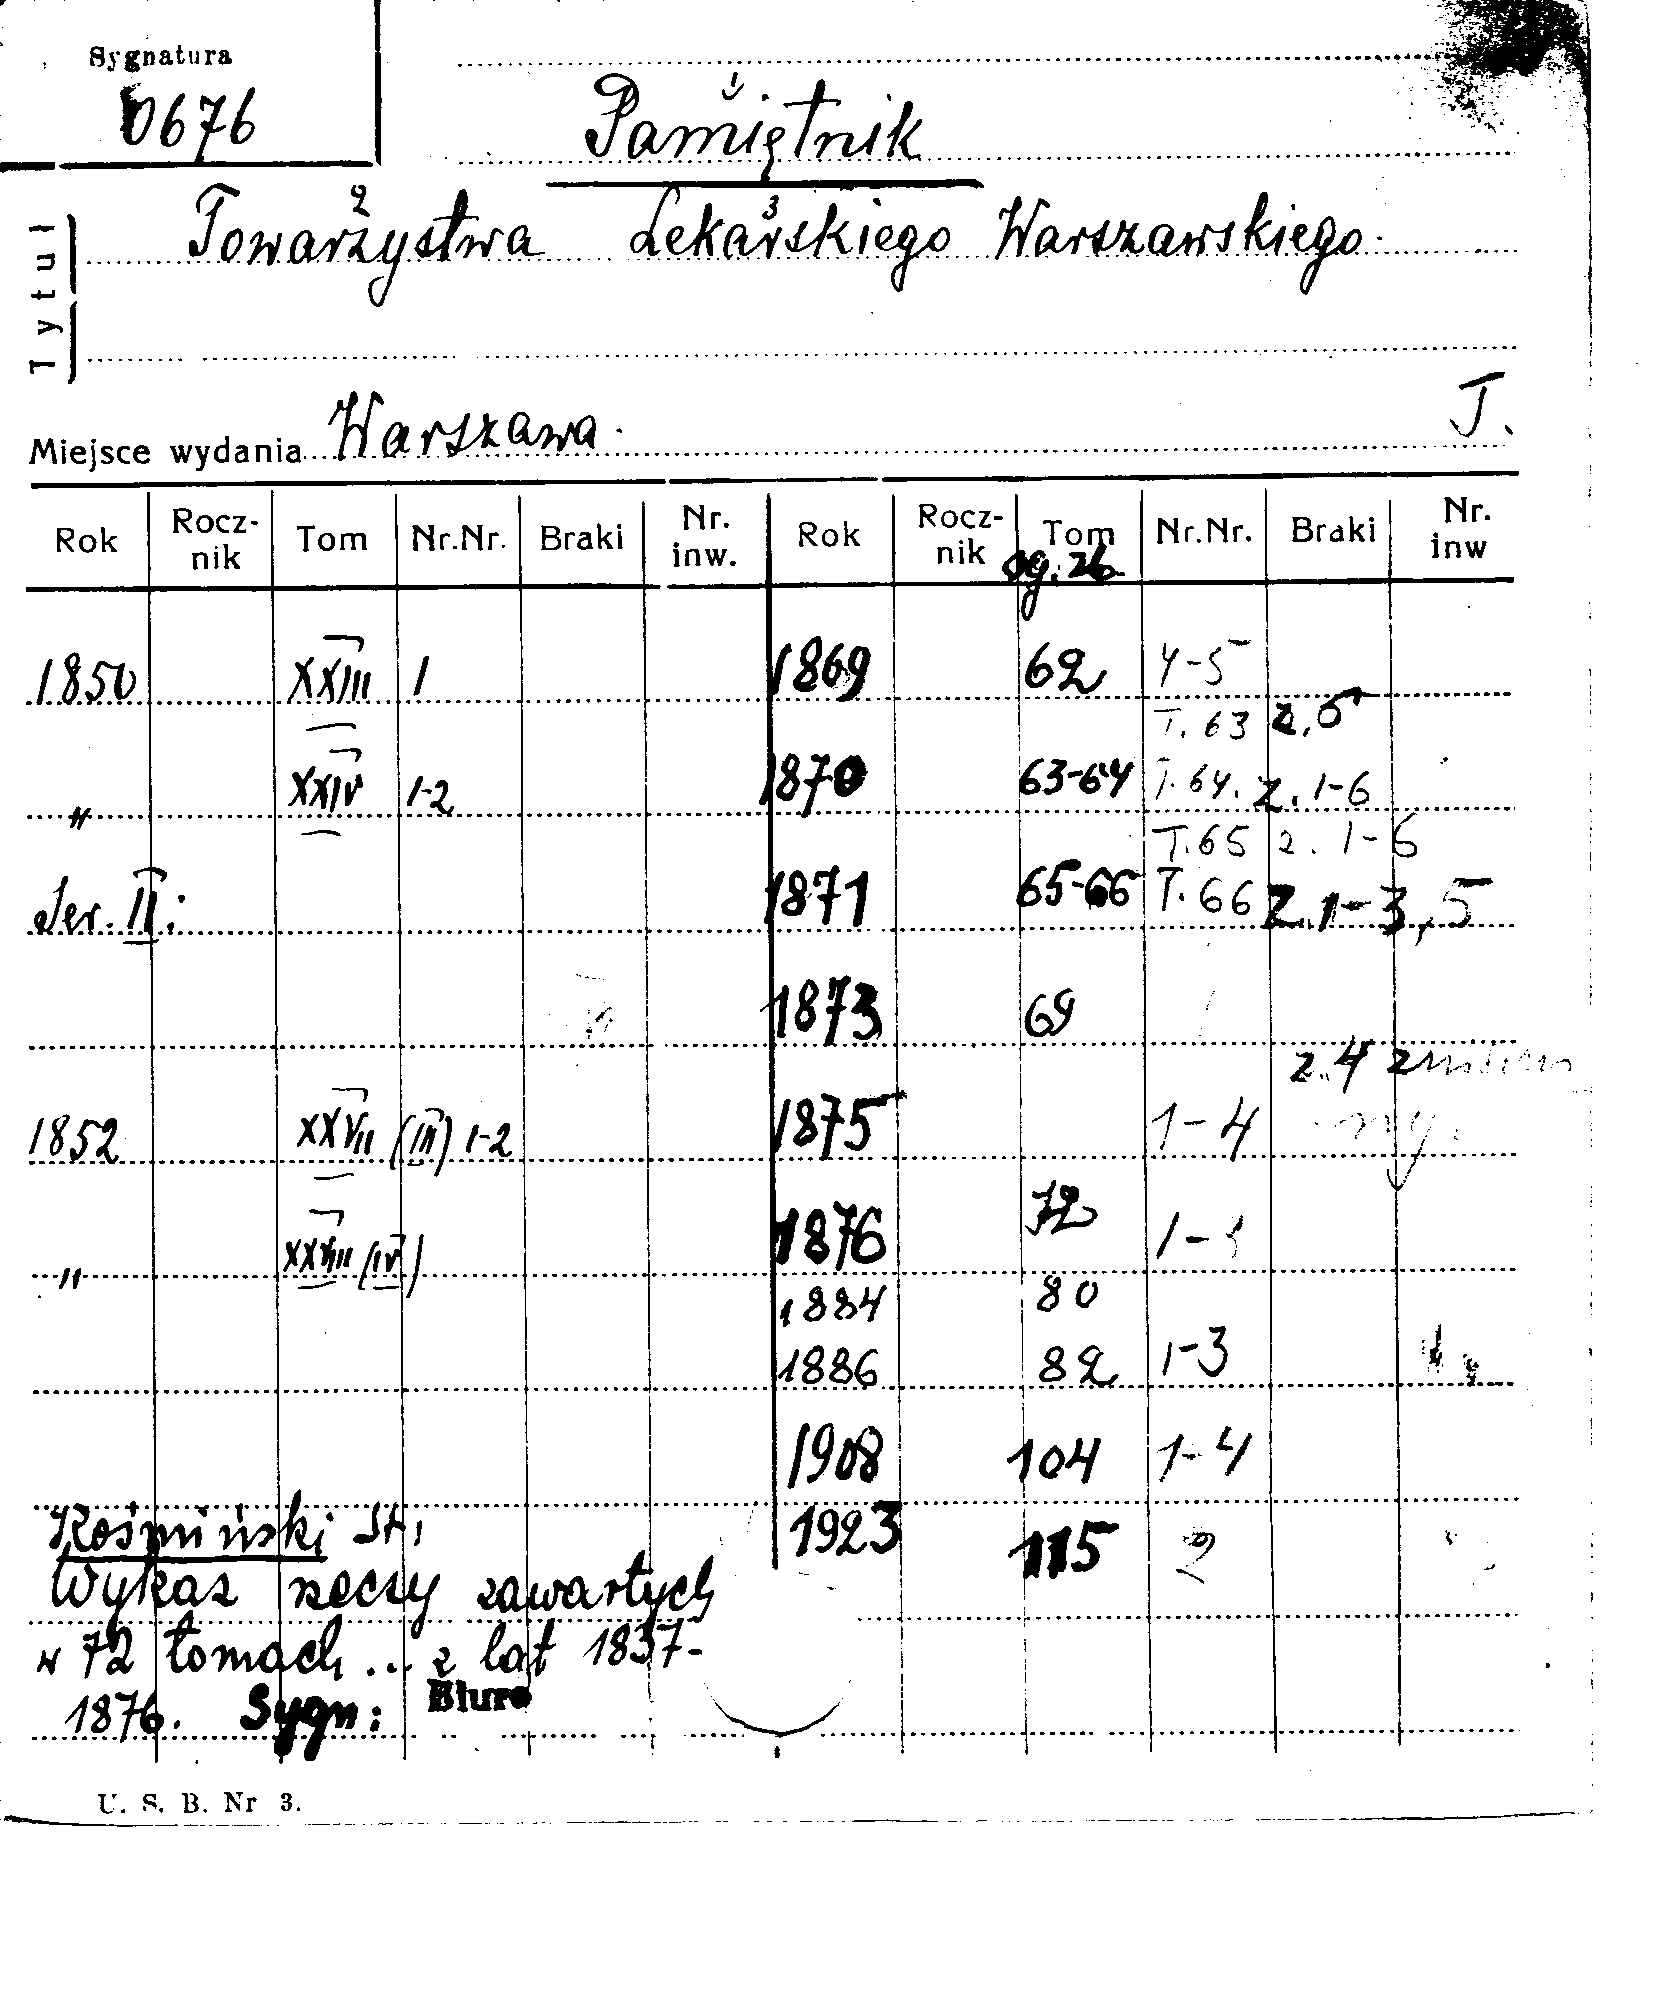 Sygnatura
0676
Pamiętnik
1 2 3
Towarzystwa Lekarskiego Warszawskiego.
Tytuł
Miejsce wydania Warszawa. T.
Rok Rocz-nik Tom Nr.Nr. Braki Nr. inw. Rok Rocz-nik Tom Nr.Nr. Braki Nr. inw
og. zb.
1850 XXIII 1 1869 62 4-5
T. 63 z. 5
" XXIV 1-2 1870 63-64 T. 64. z. 1-6
T. 65 z. 1-6
Ser. II: 1871 65-66 T. 66 z. 1-3, 5
1873 69
z. 4
1852 XXVII (III) 1-2 1875 1-4
" XXVIII (IV) 1 1876 72
1884 80
1886 82 1-3
1908 104 1-4
Kośmiński St. 1923 115 2
Wykaz rzeczy zawartych
w 72 tomach ... z lat 1837-
1876. Sygn: Biuro
U. S. B. Nr 3.